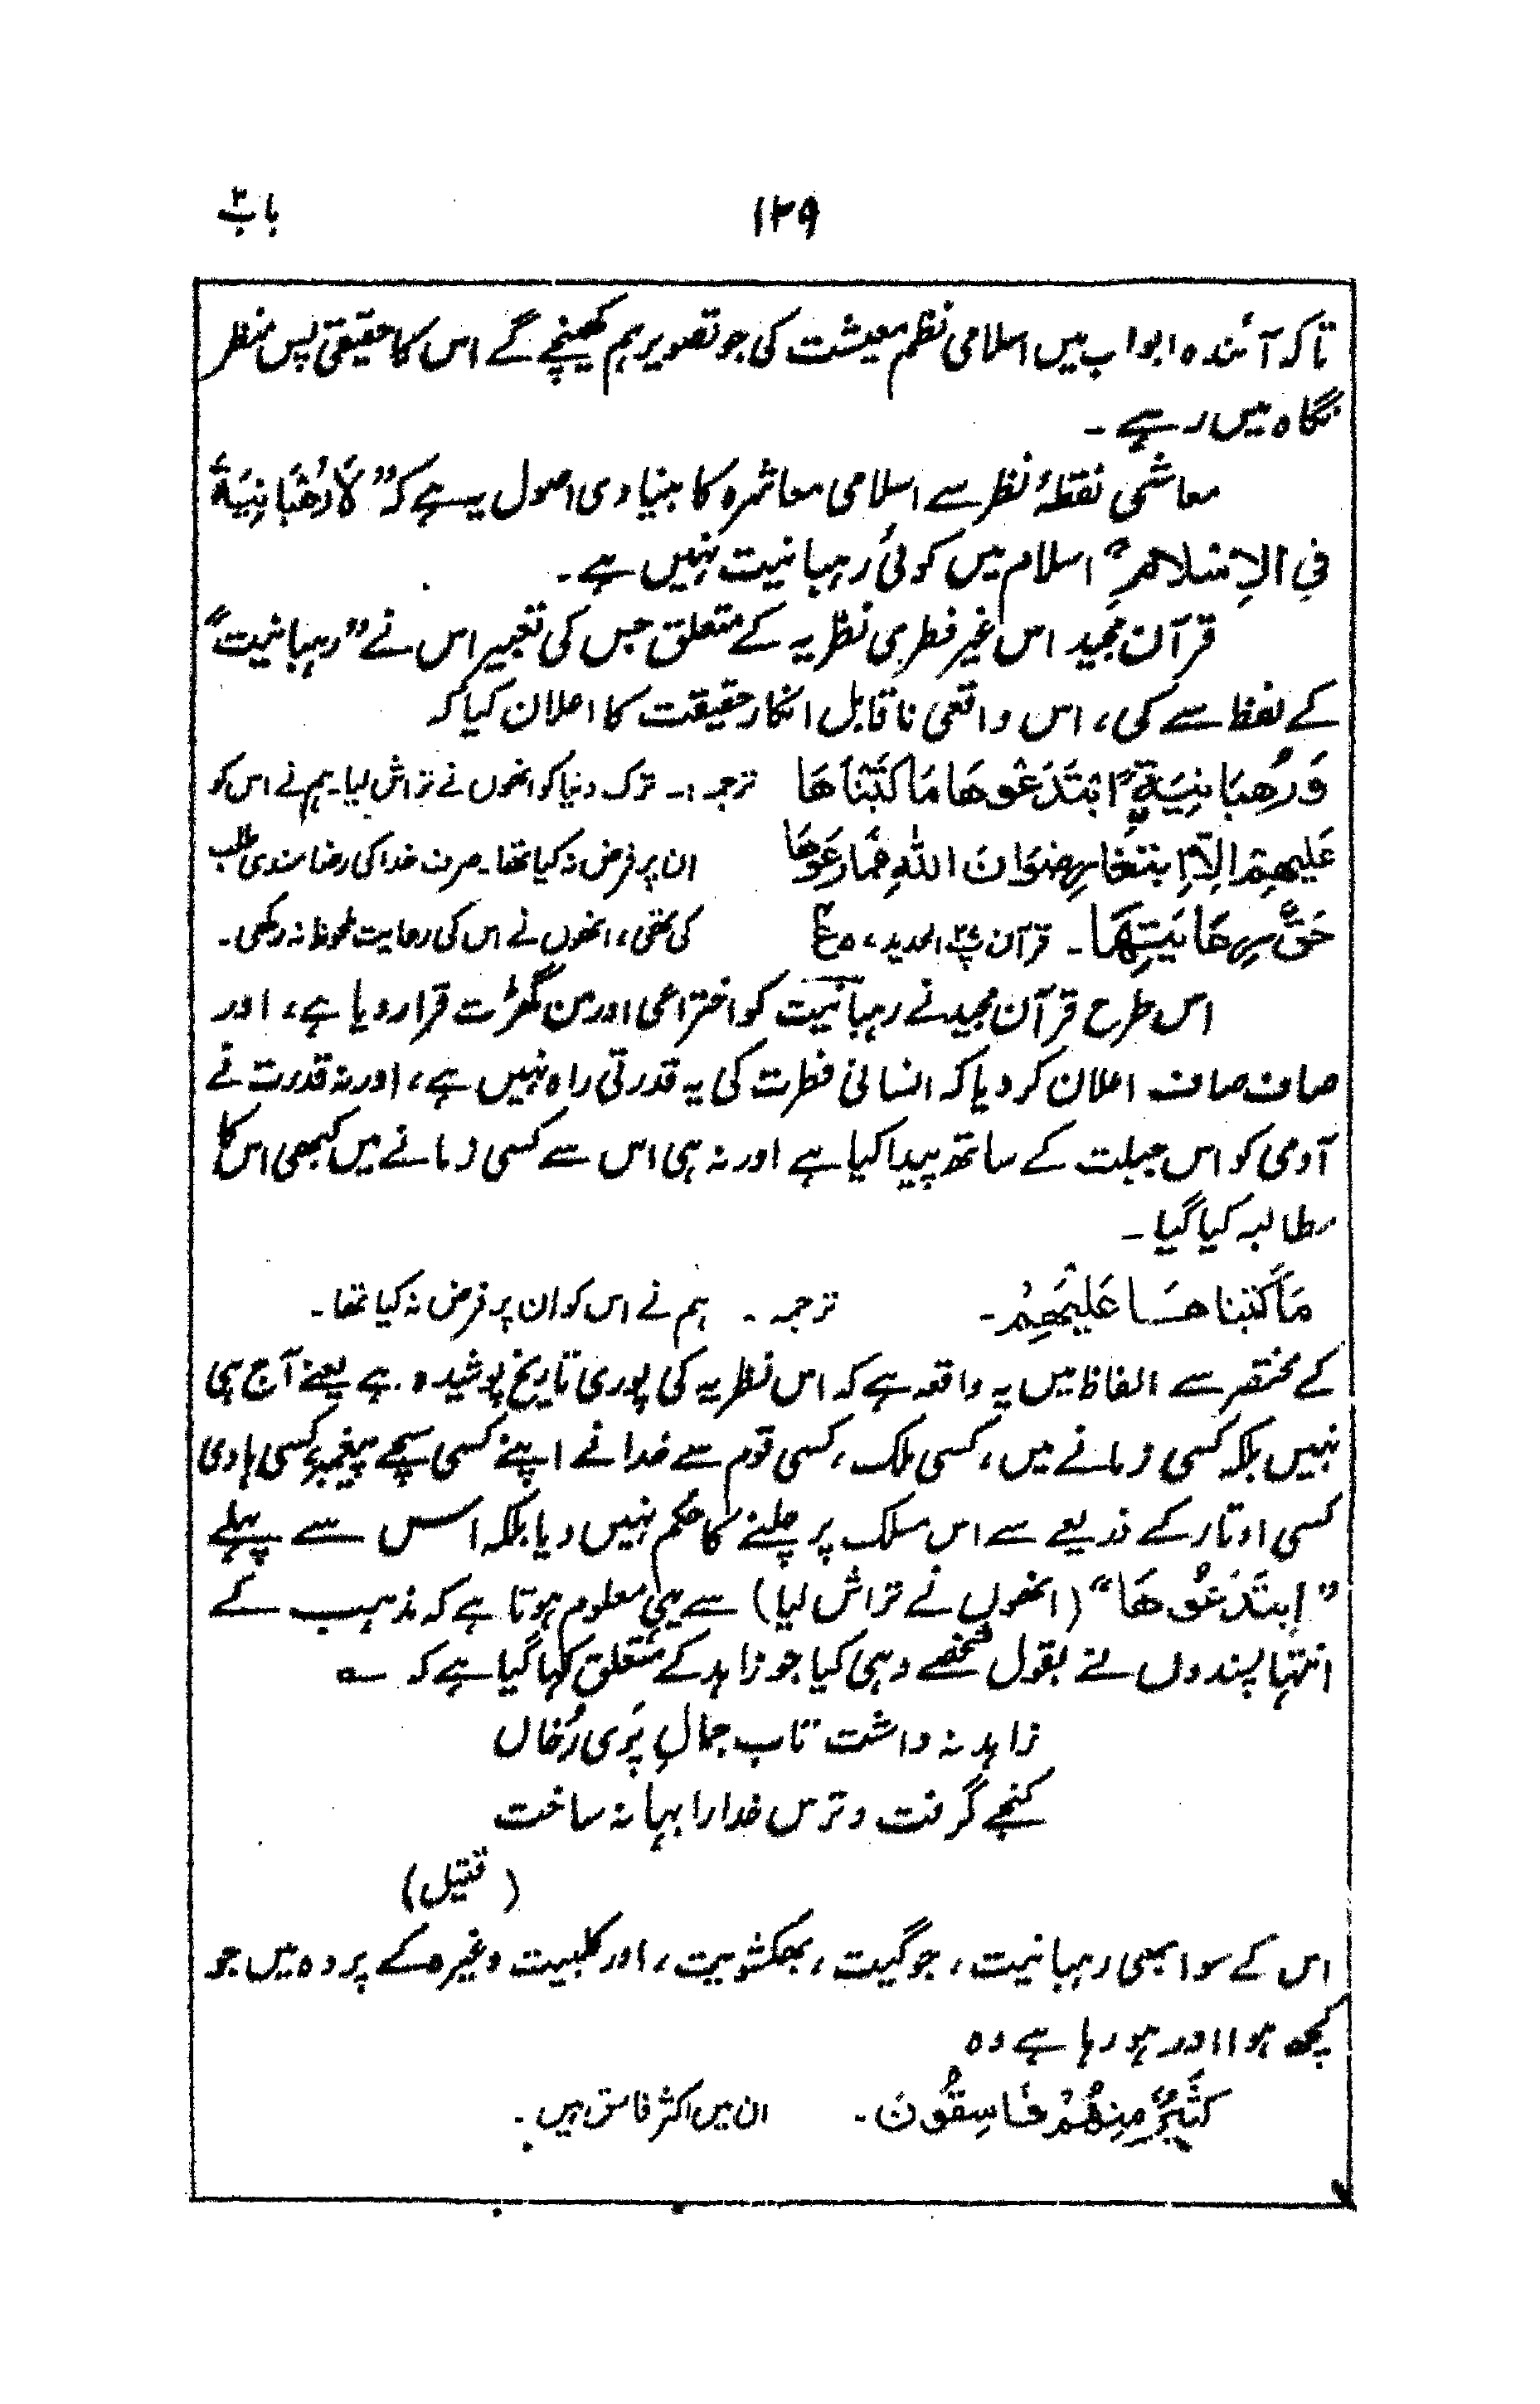 باب۳
۱۲۹
تاکہ آئندہ ابواب میں اسلامی نظم معیشت کی جو تصویر ہم کھینچے گے اس کا حقیقی پس منظر
نگاہ میں رہے ۔
معاشی نقطۂ نظر سے اسلامی معاشرہ کا بنیادی اصول یہ ہے کہ ”لَا رُھْبَانِیَةَ
فِی الِاسْلَامِ“ اسلام میں کوئی رہبانیت نہیں ہے ۔
قرآن مجید اس غیر فطری نظریہ کے متعلق جس کی تعبیر اس نے ”رہبانیت“
کے لفظ سے کی، اس واقعی ناقابل انکار حقیقت کا اعلان کیا کہ
وَرُھبَانِیَةِ اۨبْتَدَعُوھَا مَا کَتَبْنَاھَا ترجمہ:۔ ترک دنیا کو انھوں نے تراش لیا۔ ہم نے اس کو
عَلَیھِمْ اِلَّا ابْتِغَا رِضْوَانَ اللّٰہِ فَمَا رَعَوْھَا ان پر فرض نہ کیا تھا۔ صرف خدا کی رضامندی طلب
حَقَّ رِعَایَتِھَا۔ قرآن پ۲۷ الحدید، ع کی تھی، انھوں نے اس کی رعایت ملحوظ نہ رکھی۔
اس طرح قرآن مجید نے رہبانیت کو اختراعی اور من گھڑت قرار دیا ہے، اور
صاف صاف اعلان کر دیا کہ انسانی فطرت کی یہ قدرتی راہ نہیں ہے، اور نہ قدرت نے
آدمی کو اس جبلت کے ساتھ پیدا کیا ہے اور نہ ہی اس سے کسی زمانے میں کبھی اس کا
مطالبہ کیا گیا ۔
مَا کَتَبْنَاھَا عَلَیْھِمْ۔ ترجمہ ۔ ہم نے اس کو ان پر فرض نہ کیا تھا۔
کے مختصر سے الفاظ میں یہ واقعہ ہے کہ اس نظریہ کی پوری تاریخ پوشیدہ ہے یعنے آج ہی
نہیں بلکہ کسی زمانے میں، کسی ملک، کسی قوم سے خدا نے اپنے کسی سچے پیغمبر، کسی ہادی
کسی اوتار کے ذریعے سے اس مسلک پر چلنے کا حکم نہیں دیا بلکہ اس سے پہلے
”اِبتَدَعُوھَا“ (انھوں نے تراش لیا) سے یہی معلوم ہوتا ہے کہ مذہب کے
انتہا پسندوں نے بقول شخصے وہی کیا جو زاہد کے متعلق کہا گیا ہے کہ ؎
زاہد نہ داشت تاب جمالِ پَری رُخاں
کنجے گرفت و ترس خدا را بہانہ ساخت
(قتیل)
اس کے سوا بھی رہبانیت، جوگیت، بھکشویت، اور کلبیت وغیرہ کے پردہ میں جو
کچھ ہوا اور ہو رہا ہے وہ
کَثِیْرٌ مِنْھُمْ فَاسِقُونَ۔ ان میں اکثر فاسق ہیں ۔